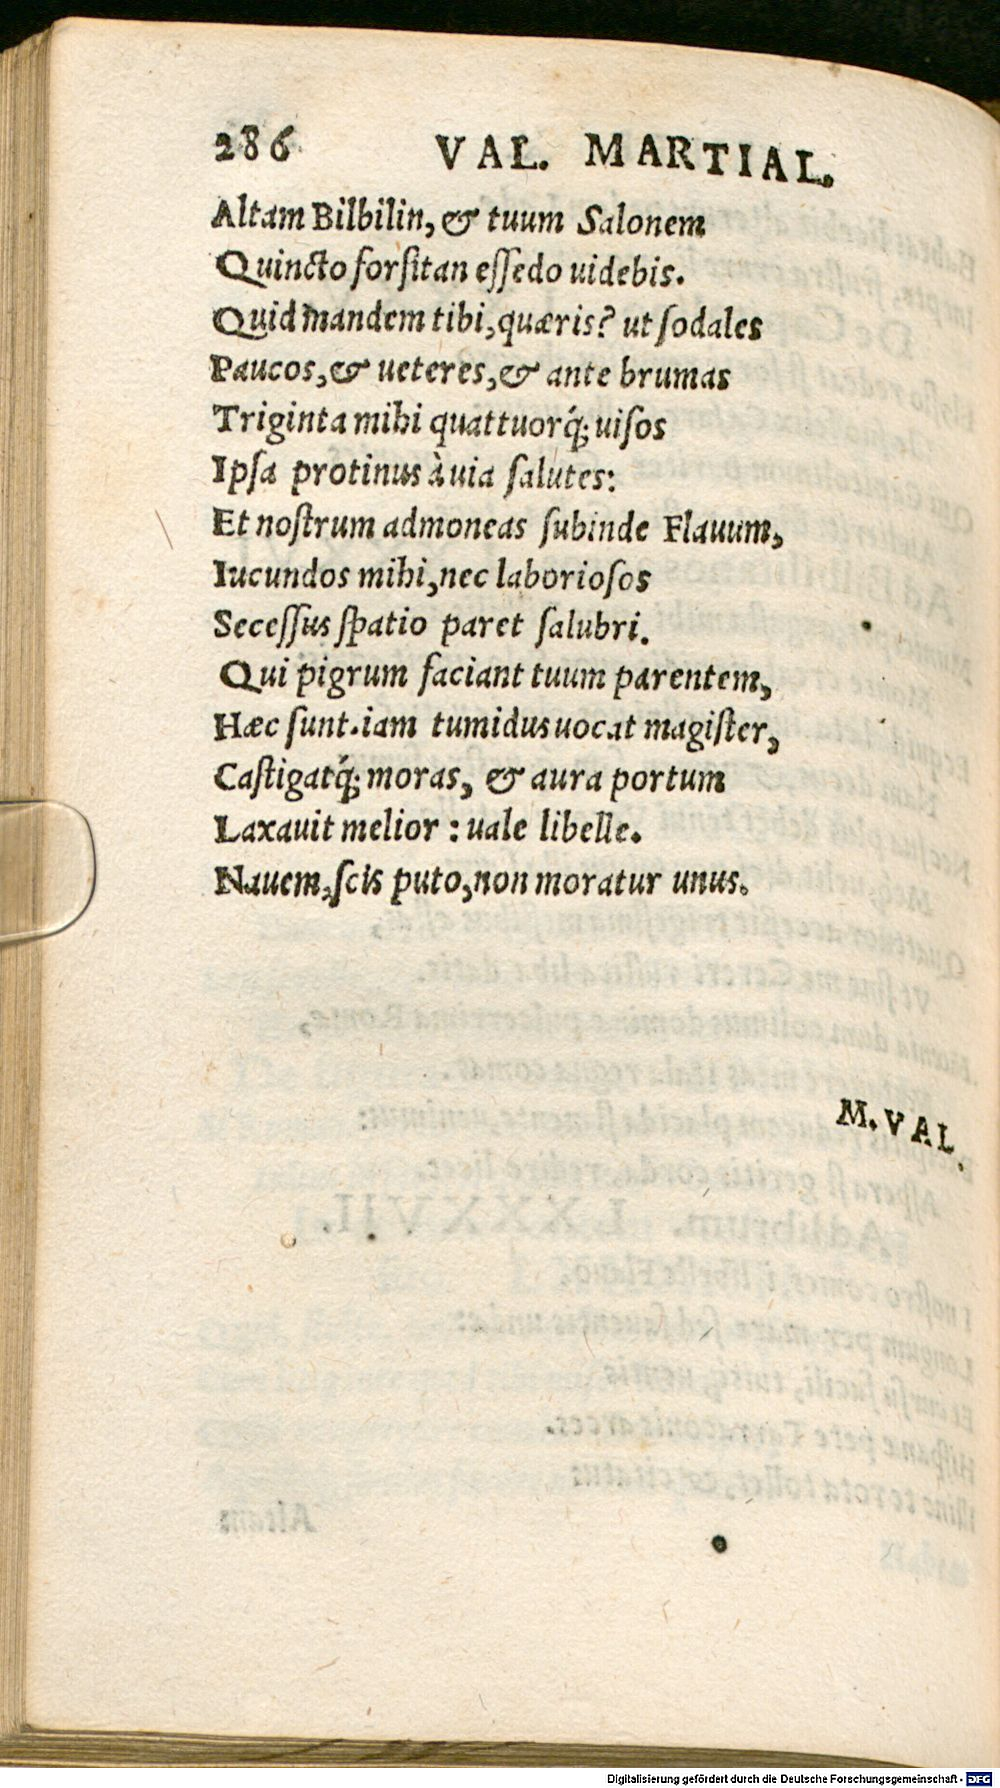 286 VAL. MARTIAL.
Altam Bilbilin, & tuum Salonem
Quincto forſitan eſſedo uidebis.
Quid mandem tibi, quæris? ut ſodales
Paucos, & ueteres, & ante brumas
Triginta mihi quattuorq́; uiſos
Ipſa protinus à uia ſalutes:
Et noſtrum admoneas ſubinde Flauum,
Iucundos mihi, nec laborioſos
Seceſſus ſpatio paret ſalubri.
Qui pigrum faciant tuum parentem,
Hæc ſunt. iam tumidus uocat magiſter,
Caſtigatq́; moras, & aura portum
Laxauit melior : uale libelle.
Nauem, ſcis puto, non moratur unus.
M. VAL.
Digitalisierung gefördert durch die Deutsche Forschungsgemeinschaft - DFG